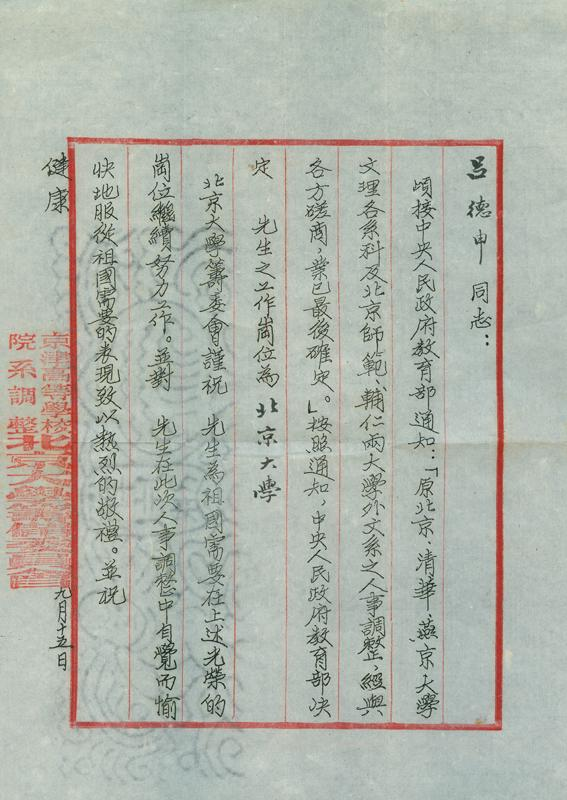 吕德申 同志：
頃接中央人民政府教育部通知：「原北京、清華、燕京大學
文理各系科及北京師範、輔仁兩大學外文系之人事調整，經與
各方磋商，業已最後確定。」按照通知，中央人民政府教育部决
定 先生之工作崗位為 北京大學
北京大學籌委會謹祝 先生為祖國需要在上述光榮的
崗位繼續努力工作。並對 先生在此次人事調整中自覺而愉
快地服從祖國需要的表現致以熱烈的敬禮。並祝
健康
京津高等學校
院系調整北京大學籌備委員會
九月十五日